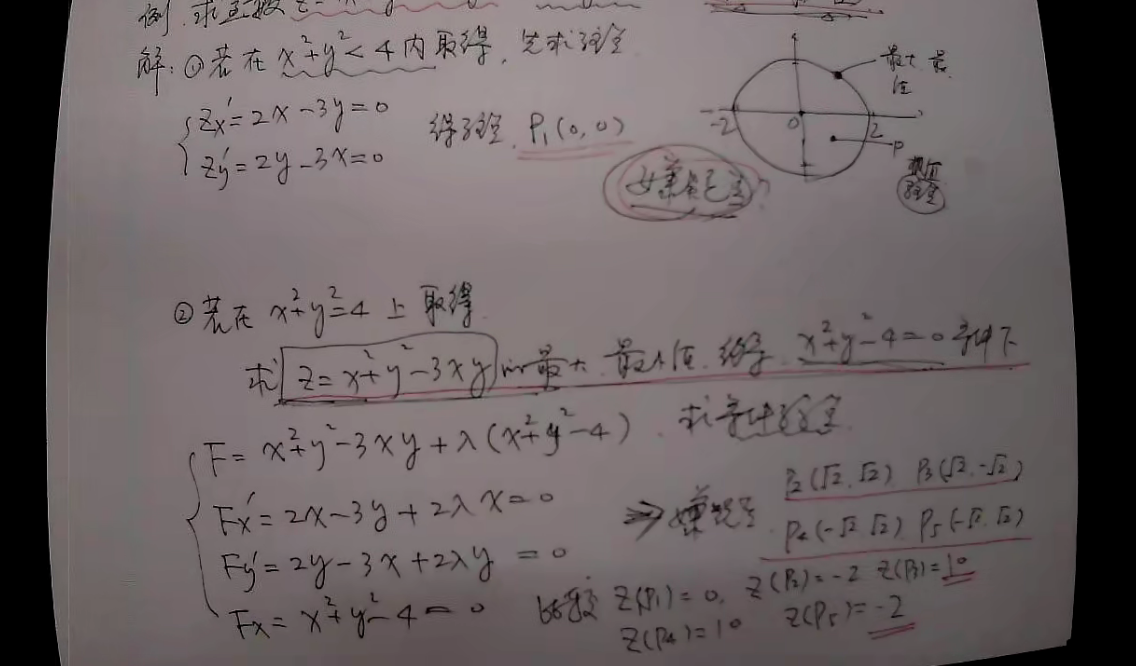 例.求函数 z=x²
解:①若在 x²+y²<4内取得,先求驻点
{ Zx'=2x-3y=0
Zy'=2y-3x=0
得驻点 P₁(0,0)
嫌疑点?
最大.最
值
-2
0
2
P
驻点
②若在 x²+y²=4 上 取得
求 z=x²+y²-3xy 的最大.最小值. x²+y²-4=0条件下
F=x²+y²-3xy+λ(x²+y²-4). 求条件驻点
Fx'=2x-3y+2λx=0
Fy'=2y-3x+2λy=0
Fx=x²+y²-4=0
⇒嫌疑点 P₂(√2,√2) P₃(√2,-√2)
P₄(-√2,√2) P₅(-√2,√2)
比较 Z(P₁)=0, Z(P₂)=-2 Z(P₃)=10
Z(P₄)=10 Z(P₅)=-2